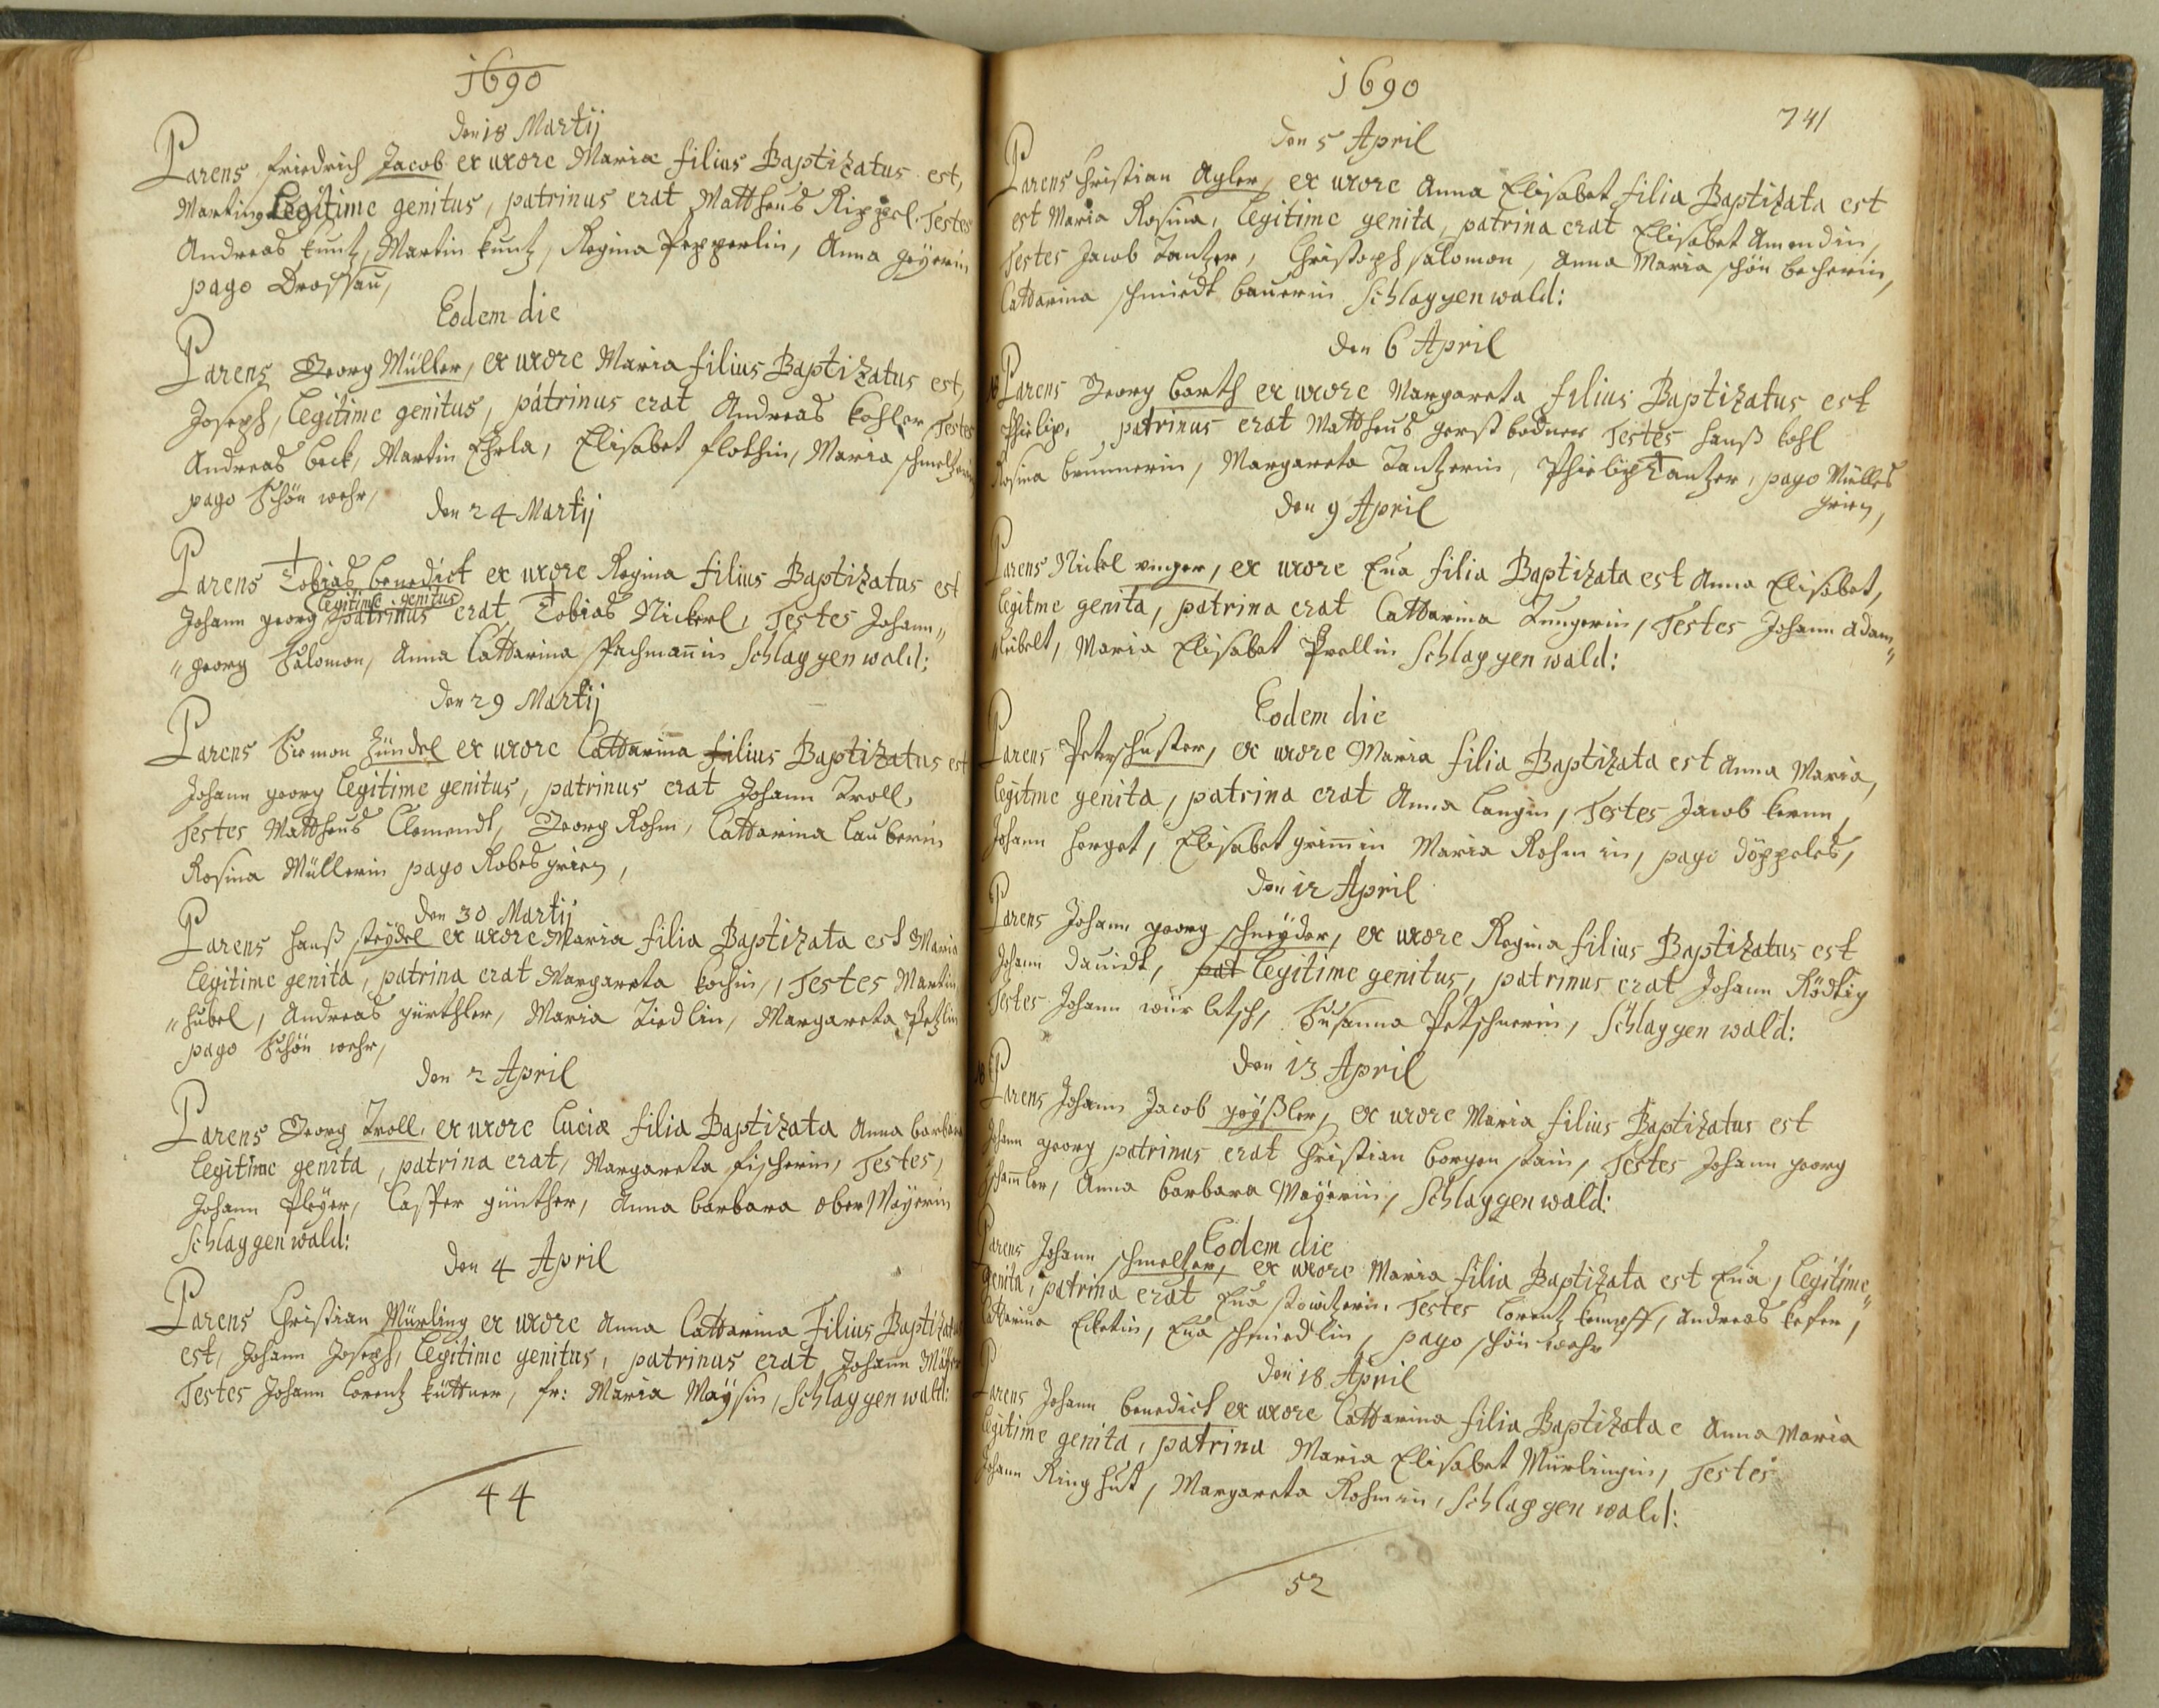 1690
den 18 Martij
Parens Friedrich Jacob ex uxore Maria filius Baptizatus est,
Martinus Legitime genitus, patrinus erat Mattheus Rippel. Testes
Andreas Kuntz, Martin Kuntz, Regina Pepperlin, Anna Geÿerin
pago Drossau,
Eodem die
Parens Georg Müller, ex uxore Maria filius Baptizatus est,
Joseph, Legitime genitus, patrinus erat Andreas Kohler Testes
Andreas beck, Martin Ehrla, Elisabet flothin, Maria schmeltzerin
pago Schön wehr,
den 24 Martij
Parens Tobias benedict ex uxore Regina filius Baptizatus est
Johann georg legitime genitus patrinus erat Tobias Nickerl, Testes Johann„
„georg Salomon, Anna Cattarina Pachmañin Schlaggenwald:
den 29 Martij
Parens Siemon Zündel ex uxore Cattarina filius Baptizatus est
Johann georg Legitime genitus, patrinus erat Johann Troll,
Testes Mattheus Clemendt, Georg Rohm, Cattarina Lauberin
Rosina Müllerin pago Robesgrien,
den 30 Martij
Parens Hanß steÿdel ex uxore Maria filia Baptizata est Maria
Legitime genita, patrina erat Margareta Kochin, Testes Martin
„Hubel, Andreas gürthler, Maria Tiedlin, Margareta Petzlin
pago Schön wehr,
den 2 April
Parens Georg Troll, ex uxore Luciæ filia Baptizata Anna barbara
Legitime genita, patrina erat, Margareta Fischerin, Testes,
Johann Pleÿer, Casper günther, Anna barbara ober Maÿerin
Schlaggenwald:
den 4 April
Parens Christian Mürling ex uxore Anna Cattarina Filius Baptizatus
est, Johann Joseph, Legitime genitus, patrinus erat Johann
Testes Johann Lorentz Küttner, fr: Maria Maÿsin, Schlaggenwald:
44
1690
741
den 5 April
Parens Christian Agler, ex uxore Anna Elisabet filia Baptizata est
est Maria Rosina, Legitime genita, patrina erat Elisabet Amendin,
Testes Jacob Tantzer, Christoph salomon, Anna Maria schön becherin,
Cattarina schmiedt bauerin Schlaggenwald:
den 6 April
Parens Georg barth ex uxore Margareta filius Baptizatus est
Phielip, patrinus erat Mattheus gerst bodner Testes Hanß Kohl
Rosina brunnerin, Margareta Tantzerin, Phielip Tantzer, pago Mülles
grien,
den 9 April
Parens Nickel unger, ex uxore Eua filia Baptizata est Anna Elisabet,
Legitme genita, patrina erat Cattarina Zungerin, Testes Johann adam„
„leibelt, Maria Elisabet Prellin Schlaggenwald:
Eodem die
Parens Peter schuster, ex uxore Maria filia Baptizata est Anna Maria,
Legitme genita, patrina erat Anna Langin, Testes Jacob Kernn,
Johann Herget, Elisabet grim̄in Maria Rohmin, pago döppeles,
den 12 April
Parens Johann georg schneÿder, ex uxore Regina filius Baptizatus est
Johann Dauidt, pat Legitime genitus, patrinus erat Johann Rödtig
Testes Johann würlitsch, Susanna Petschnerin, Schlaggenwald:
den 13 April
Parens Johann Jacob göÿßler, ex uxore Maria filius Baptizatus est
Johann georg patrinus erat Christian borgen stain, Testes Johann georg
Anna barbara Maÿerin, Schlaggenwald:
Eodem die
Parens Johann schmeltzer, ex uxore Maria filia Baptizata est Eua, Legitime„
genita, patrina erat Eua stowitzerin. Testes Lorentz Kempff, Andreas Kefer,
Catterina Eckertin, Eua schmiedlin, pago schön wehr
den 18 April
Parens Johann benedict ex uxore Cattarina filia Baptizata e Anna Maria
Legitime genita, patrina Maria Elisabet Mürlingin, Testes
Johann Ring hut, Margareta Rohmin, Schlaggenwald:
52